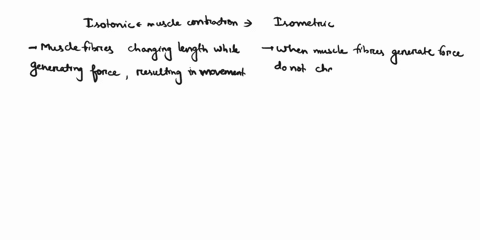 Isotonic ← muscle contration → Isometric
→ Muscle fibres changing length while
generating force, resulting in movement
→ When muscle fibres generate force
do not chr